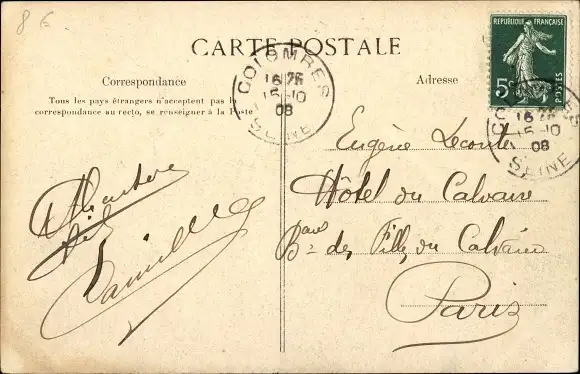 8 €
CARTE POSTALE
Correspondance
Adresse
Tous les pays étrangers n'acceptent pas la
correspondance au recto, se renseigner à la Poste
RÉPUBLIQUE FRANÇAISE
5c
POSTES
COLOMBES
16 25
15-10
08
SEINE
COLOMBES
16 25
15-10
08
SEINE
Eugène Leconte
Hôtel du Calvaire
Bard des Filles du Calvaire
Paris